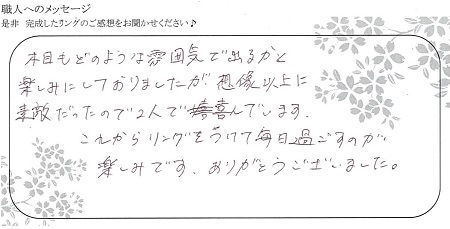 職人へのメッセージ
是非 完成したリングのご感想をお聞かせください♪
木目もどのような雰囲気で出るかと
楽しみにしておりましたが想像以上に
素敵だったので2人で喜んでいます。
これからリングをつけて毎日過ごすのが
楽しみです。ありがとうございました。